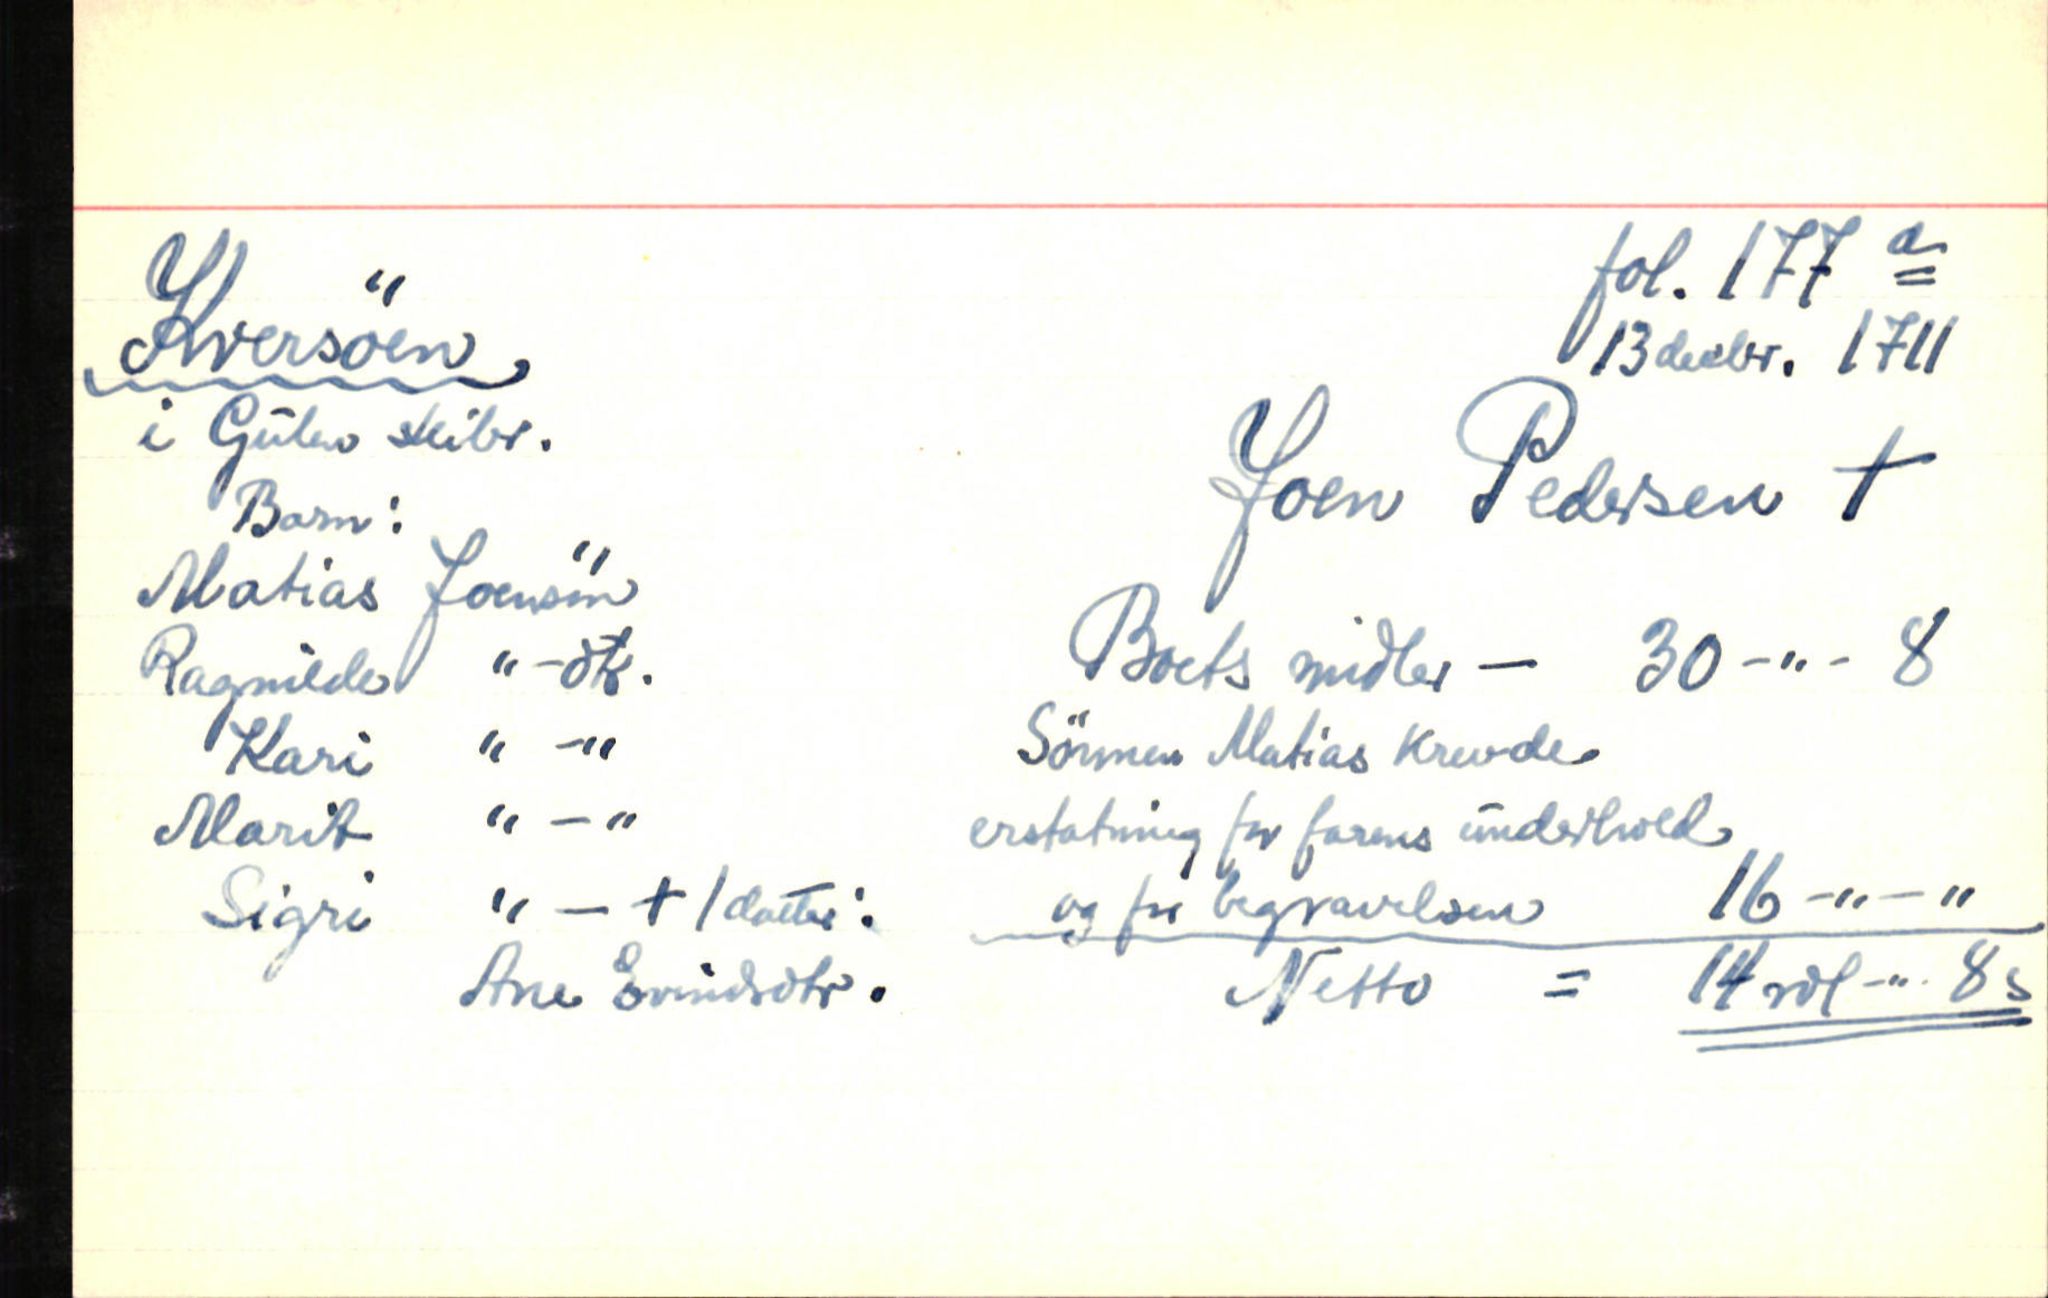 fol. 177 a
Kversöen
13 decbr. 1711
i Gulen skibr.
Joen Pedersen †
Barn:
Matias Joensön
Ragnilde " - dtr.
Boets midler — 30 - " - 8
Kari " - "
Sönnen Matias krevde
Marit " - "
erstatning for farens underhold
Sigri " - † / datter:
og for begravelsen 16 - " - "
Ane Evindsdtr.
Netto = 14 rdl - " - 8 s